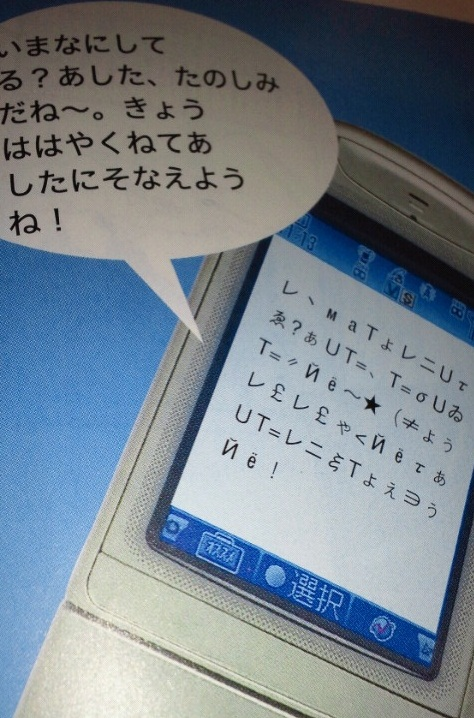 いまなにして
る？あした、たのしみ
だね〜。きょう
ははやくねてあ
したにそなえよう
ね！
レヽмаTょレニUτ
ゑ？ぁUT=、T=σUゐ
T=〃йё〜★（≠ょぅ
レ£レ£ゃ<йёτぁ
UT=レニξTょぇ∋ぅ
йё！
選択